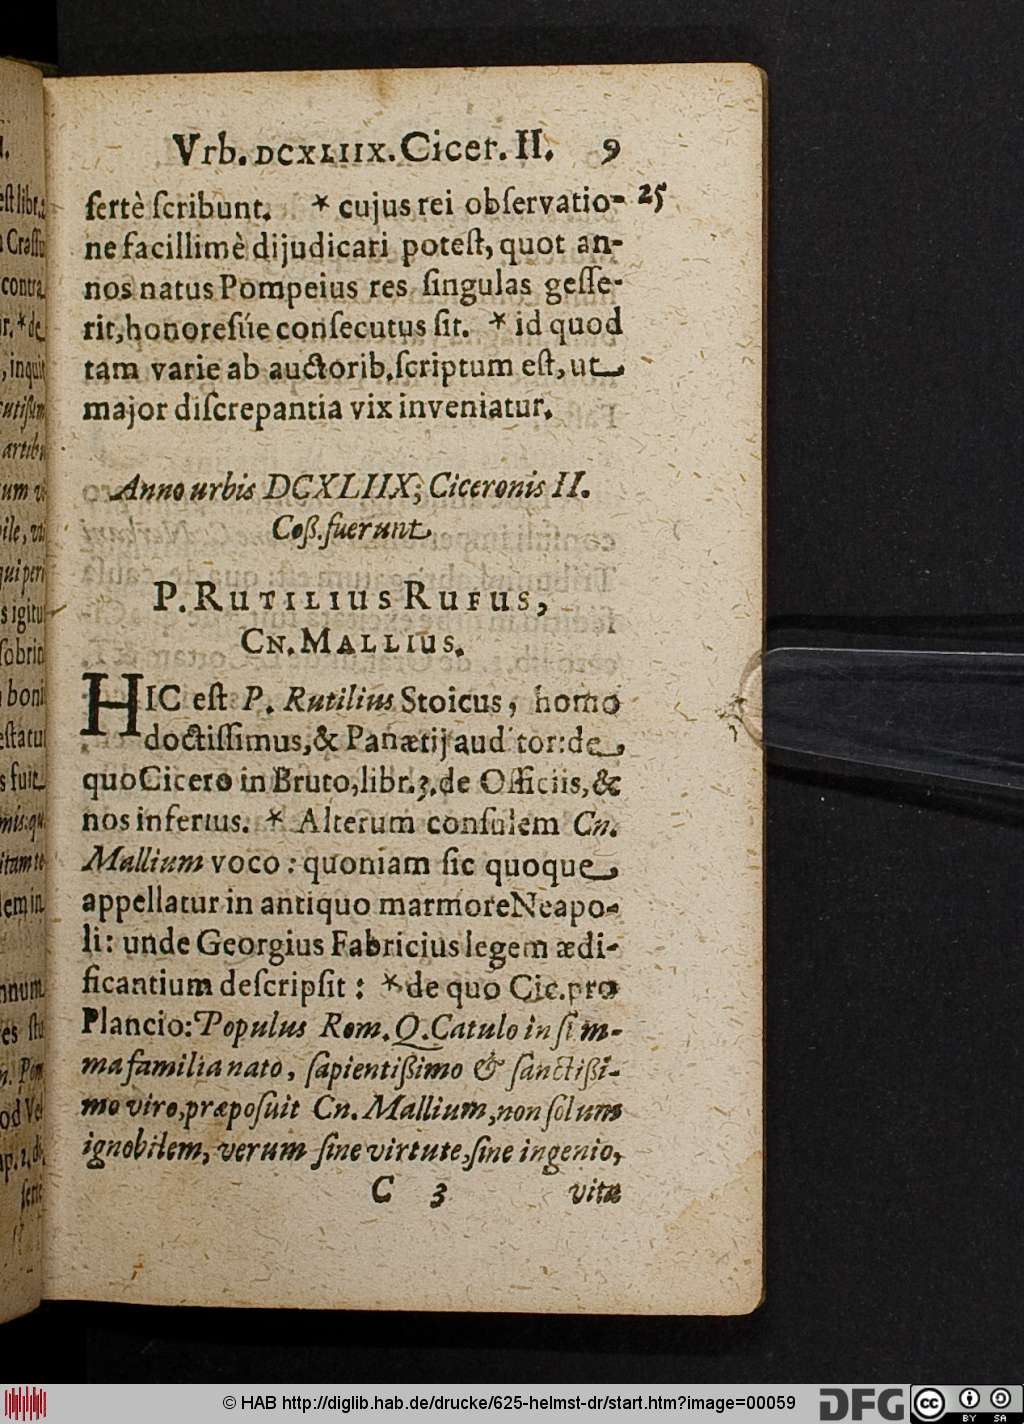 Vrb. DCXLIIX. Cicer. II. 9
ſertè ſcribunt. * cujus rei obſervatio- 25
ne facillimè dijudicari poteſt, quot an-
nos natus Pompeius res ſingulas geſſe-
rit, honoresúe conſecutus ſit. * id quod
tam varie ab auctorib. ſcriptum eſt, ut
major diſcrepantia vix inveniatur.
Anno urbis DCXLIIX, Ciceronis II.
Coß. fuerunt
P. RUTILIUS RUFUS,
CN. MALLIUS.
HIC eſt P. Rutilius Stoicus, homo
doctiſſimus, & Panætij auditor: de
quo Cicero in Bruto, libr. 3. de Officiis, &
nos inferius. * Alterum conſulem Cn.
Mallium voco: quoniam ſic quoque
appellatur in antiquo marmore Neapo-
li: unde Georgius Fabricius legem ædi-
ficantium deſcripſit: * de quo Cic. pro
Plancio: Populus Rom. Q. Catulo in ſum-
ma familia nato, ſapientißimo & ſanctißi-
mo viro, præpoſuit Cn. Mallium, non ſolum
ignobilem, verum ſine virtute, ſine ingenio,
C 3 vita
© HAB http://diglib.hab.de/drucke/625-helmst-dr/start.htm?image=00059
DFG
cc
BY SA